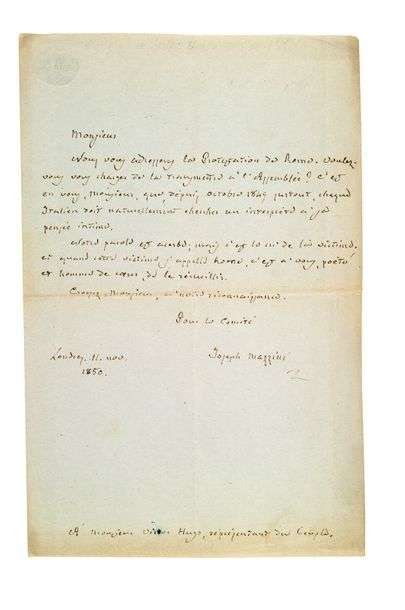 Monsieur
Nous vous adressons la Protestation de Rome. Voulez-
vous vous charger de la transmettre à l'Assemblée? C'est
en vous, Monsieur, que, depuis Octobre 1849 surtout, chaque
Italien doit naturellement chercher un interprète à sa
pensée intime.
Notre parole est acerbe, mais c'est le cri de la victime.
et quand cette victime s'appelle Rome, c'est à vous, poète
et homme de cœur, de le recueillir.
Croyez, Monsieur, à notre reconnaissance.
Pour le Comité
Londres, 11. nov. Joseph Mazzini
1850.
À Monsieur Victor Hugo, représentant du Peuple.